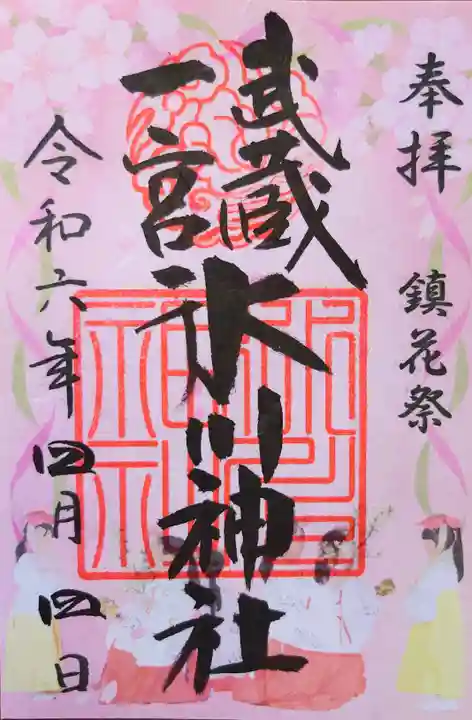 奉拝 鎮花祭
武蔵
一宮
氷川神社
令和六年四月四日